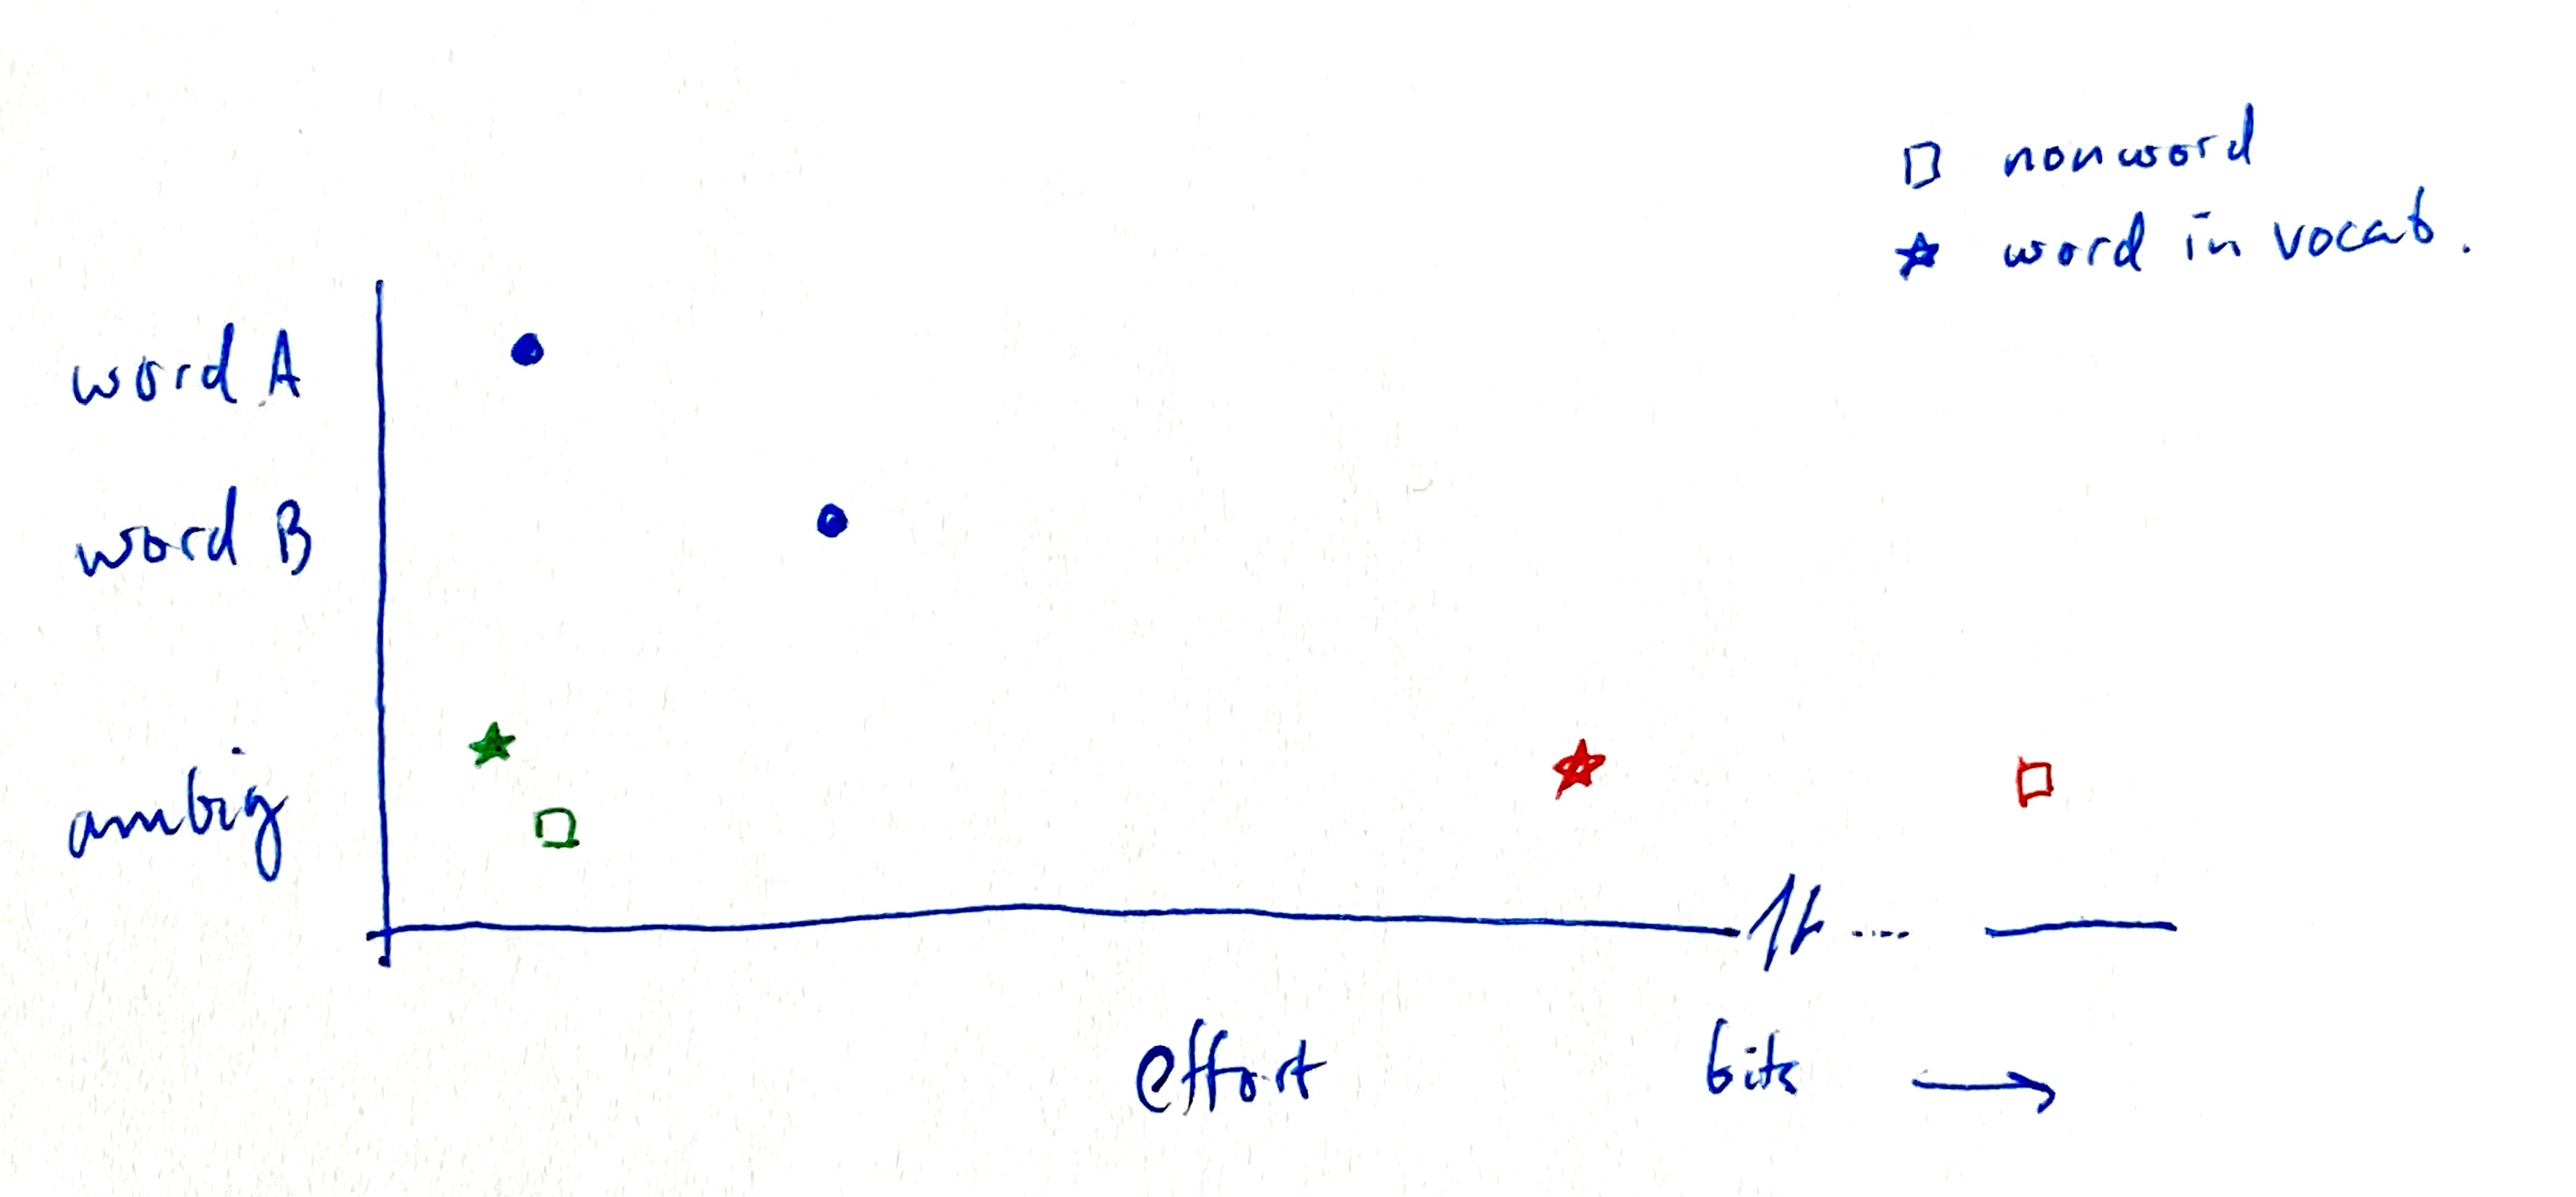 nonword
word in vocab.
word A
word B
ambig
effort bits